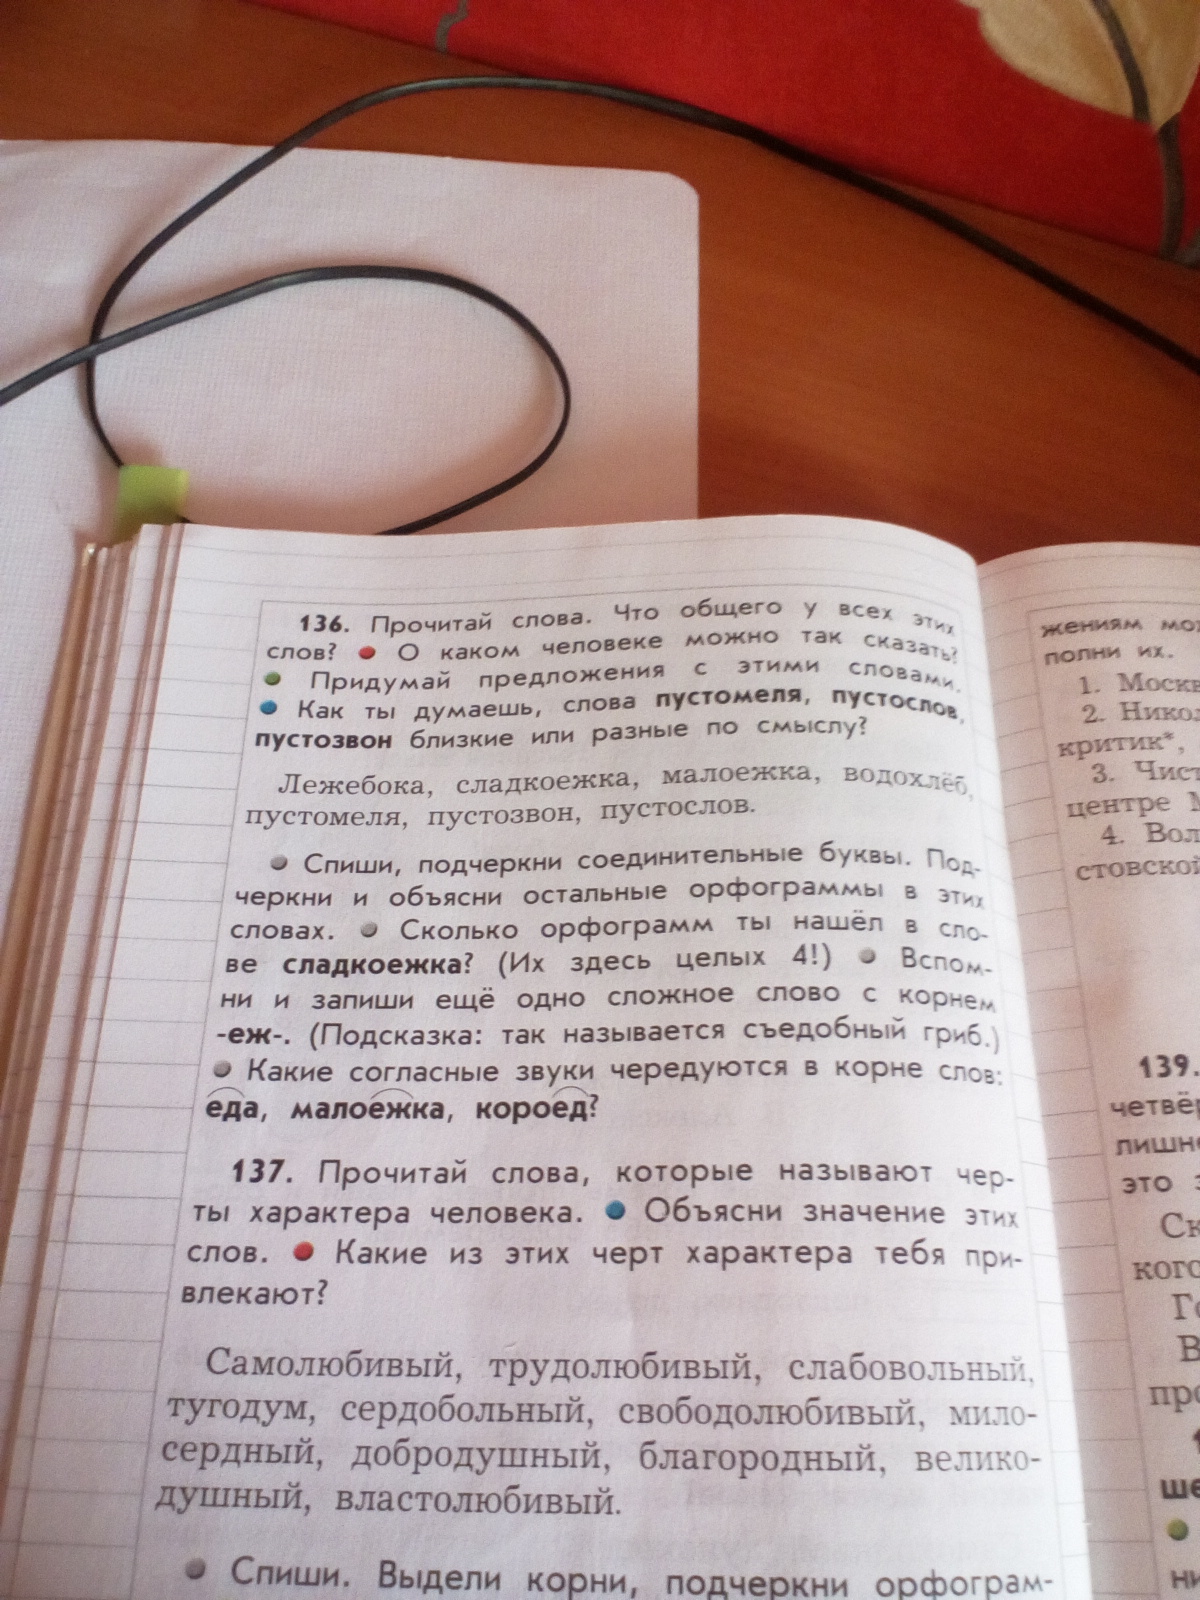 136. Прочитай слова. Что общего у всех этих
слов? ● О каком человеке можно так сказать?
● Придумай предложения с этими словами.
● Как ты думаешь, слова пустомеля, пустослов,
пустозвон близкие или разные по смыслу?
Лежебока, сладкоежка, малоежка, водохлёб,
пустомеля, пустозвон, пустослов.
● Спиши, подчеркни соединительные буквы. Под-
черкни и объясни остальные орфограммы в этих
словах. ● Сколько орфограмм ты нашёл в сло-
ве сладкоежка? (Их здесь целых 4!) ● Вспом-
ни и запиши ещё одно сложное слово с корнем
-еж-. (Подсказка: так называется съедобный гриб.)
● Какие согласные звуки чередуются в корне слов:
еда, малоежка, короед?
137. Прочитай слова, которые называют чер-
ты характера человека. ● Объясни значение этих
слов. ● Какие из этих черт характера тебя при-
влекают?
Самолюбивый, трудолюбивый, слабовольный,
тугодум, сердобольный, свободолюбивый, мило-
сердный, добродушный, благородный, велико-
душный, властолюбивый.
● Спиши. Выдели корни, подчеркни орфограм-
жениям
полни их.
1.
2.
критик*,
3.
центре
4.
139.
это